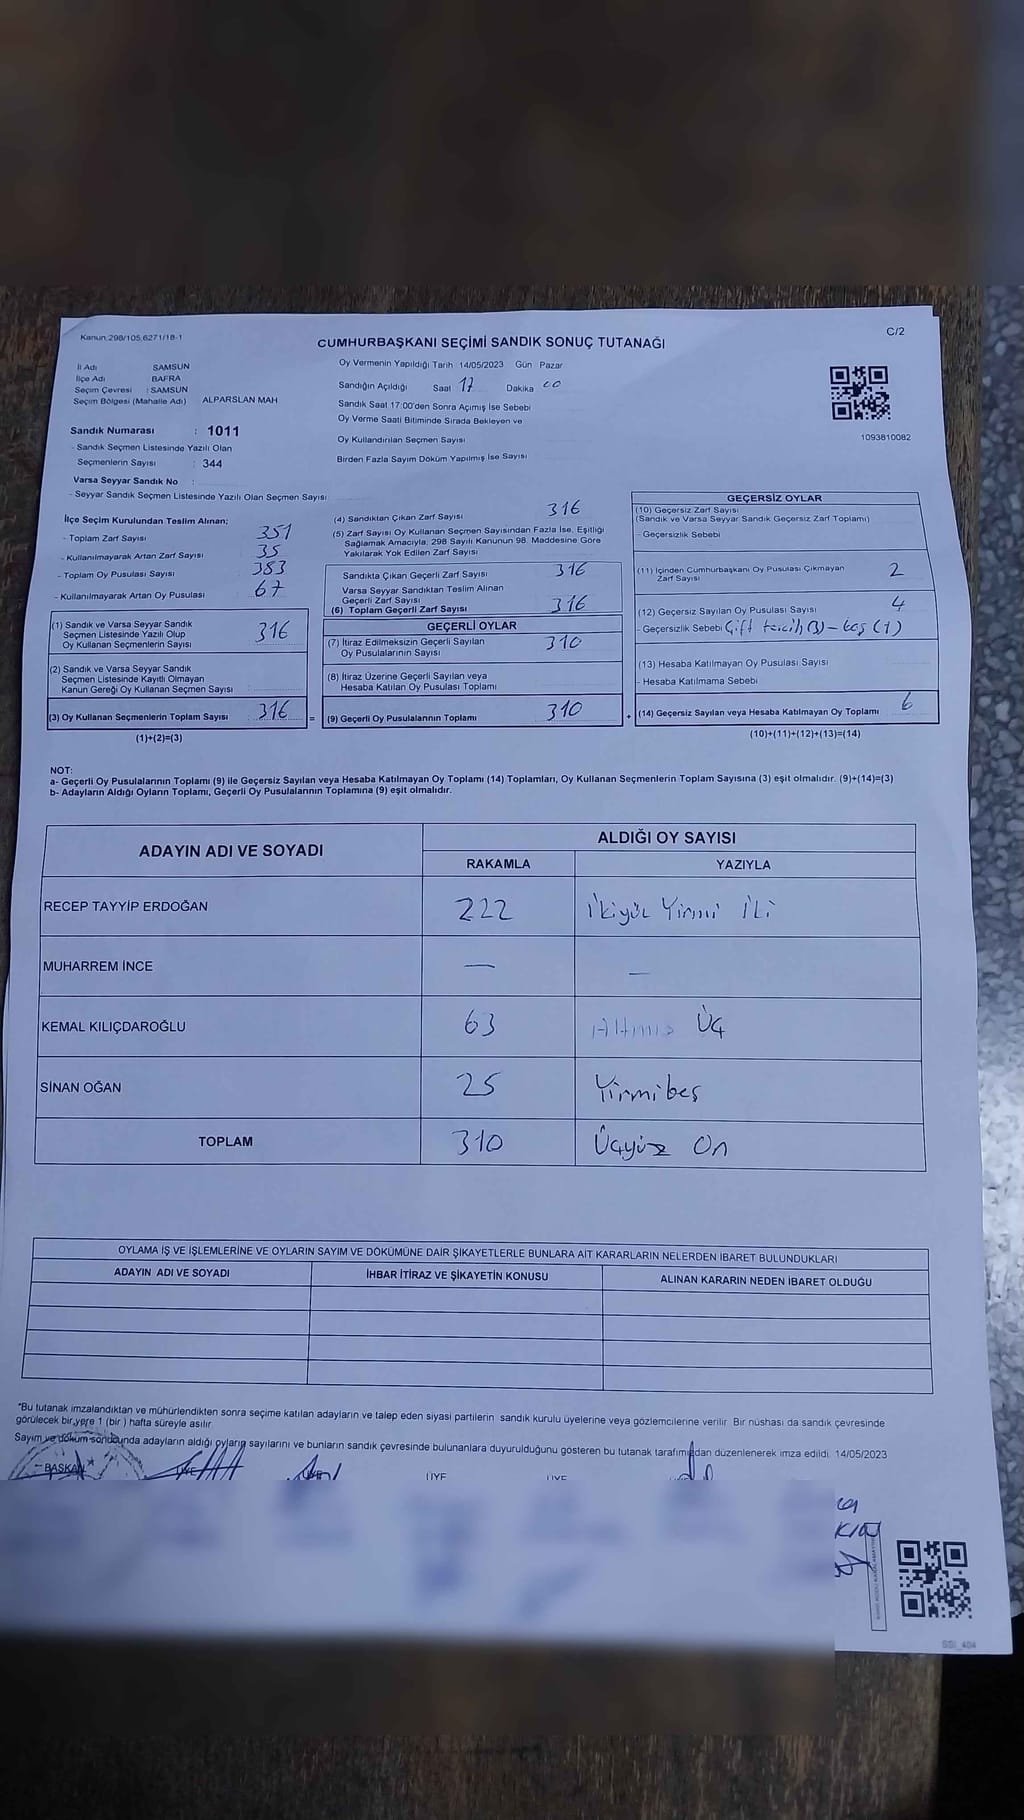 Kanun:298/105,6271/18-1
C/2
CUMHURBAŞKANI SEÇİMİ SANDIK SONUÇ TUTANAĞI
İl Adı : SAMSUN
İlçe Adı : BAFRA
Seçim Çevresi : SAMSUN
Seçim Bölgesi (Mahalle Adı) ALPARSLAN MAH
Sandık Numarası : 1011
- Sandık Seçmen Listesinde Yazılı Olan
Seçmenlerin Sayısı : 344
Varsa Seyyar Sandık No :
- Seyyar Sandık Seçmen Listesinde Yazılı Olan Seçmen Sayısı
Oy Vermenin Yapıldığı Tarih 14/05/2023 Gün Pazar
Sandığın Açıldığı Saat 17 Dakika 00
Sandık Saat 17:00'den Sonra Açımış İse Sebebi
Oy Verme Saati Bitiminde Sırada Bekleyen ve
Oy Kullandırılan Seçmen Sayısı
Birden Fazla Sayım Döküm Yapılmış İse Sayısı
1093810082
İlçe Seçim Kurulundan Teslim Alınan;
- Toplam Zarf Sayısı 351
- Kullanılmayarak Artan Zarf Sayısı 35
- Toplam Oy Pusulası Sayısı 383
- Kullanılmayarak Artan Oy Pusulası 67
(1) Sandık ve Varsa Seyyar Sandık
Seçmen Listesinde Yazılı Olup
Oy Kullanan Seçmenlerin Sayısı 316
(2) Sandık ve Varsa Seyyar Sandık
Seçmen Listesinde Kayıtlı Olmayan
Kanun Gereği Oy Kullanan Seçmen Sayısı
(3) Oy Kullanan Seçmenlerin Toplam Sayısı 316
(1)+(2)=(3)
(4) Sandıktan Çıkan Zarf Sayısı 316
(5) Zarf Sayısı Oy Kullanan Seçmen Sayısından Fazla İse, Eşitliği
Sağlamak Amacıyla, 298 Sayılı Kanunun 98. Maddesine Göre
Yakılarak Yok Edilen Zarf Sayısı
Sandıkta Çıkan Geçerli Zarf Sayısı 316
Varsa Seyyar Sandıktan Teslim Alınan
Geçerli Zarf Sayısı
(6) Toplam Geçerli Zarf Sayısı 316
GEÇERLİ OYLAR
(7) İtiraz Edilmeksizin Geçerli Sayılan
Oy Pusulalarının Sayısı 310
(8) İtiraz Üzerine Geçerli Sayılan veya
Hesaba Katılan Oy Pusulası Toplamı
= (9) Geçerli Oy Pusulalarının Toplamı 310
GEÇERSİZ OYLAR
(10) Geçersiz Zarf Sayısı
(Sandık ve Varsa Seyyar Sandık Geçersiz Zarf Toplamı)
- Geçersizlik Sebebi
(11) İçinden Cumhurbaşkanı Oy Pusulası Çıkmayan
Zarf Sayısı 2
(12) Geçersiz Sayılan Oy Pusulası Sayısı 4
- Geçersizlik Sebebi Çift tercih (3) - boş (1)
(13) Hesaba Katılmayan Oy Pusulası Sayısı
- Hesaba Katılmama Sebebi
+ (14) Geçersiz Sayılan veya Hesaba Katılmayan Oy Toplamı 6
(10)+(11)+(12)+(13)=(14)
NOT:
a- Geçerli Oy Pusulalarının Toplamı (9) ile Geçersiz Sayılan veya Hesaba Katılmayan Oy Toplamı (14) Toplamları, Oy Kullanan Seçmenlerin Toplam Sayısına (3) eşit olmalıdır. (9)+(14)=(3)
b- Adayların Aldığı Oyların Toplamı, Geçerli Oy Pusulalarının Toplamına (9) eşit olmalıdır.
ADAYIN ADI VE SOYADI
ALDIĞI OY SAYISI
RAKAMLA YAZIYLA
RECEP TAYYİP ERDOĞAN 222 İkiyüz Yirmi İki
MUHARREM İNCE — —
KEMAL KILIÇDAROĞLU 63 Altmış Üç
SİNAN OĞAN 25 Yirmibeş
TOPLAM 310 Üçyüz On
OYLAMA İŞ VE İŞLEMLERİNE VE OYLARIN SAYIM VE DÖKÜMÜNE DAİR ŞİKAYETLERLE BUNLARA AİT KARARLARIN NELERDEN İBARET BULUNDUKLARI
ADAYIN ADI VE SOYADI İHBAR İTİRAZ VE ŞİKAYETİN KONUSU ALINAN KARARIN NEDEN İBARET OLDUĞU
*Bu tutanak imzalandıktan ve mühürlendikten sonra seçime katılan adayların ve talep eden siyasi partilerin sandık kurulu üyelerine veya gözlemcilerine verilir. Bir nüshası da sandık çevresinde
görülecek bir yere 1 (bir) hafta süreyle asılır.
Sayım ve döküm sonucunda adayların aldığı oyların sayılarını ve bunların sandık çevresinde bulunanlara duyurulduğunu gösteren bu tutanak tarafımızdan düzenlenerek imza edildi. 14/05/2023
BAŞKAN ÜYE ÜYE ÜYE ÜYE